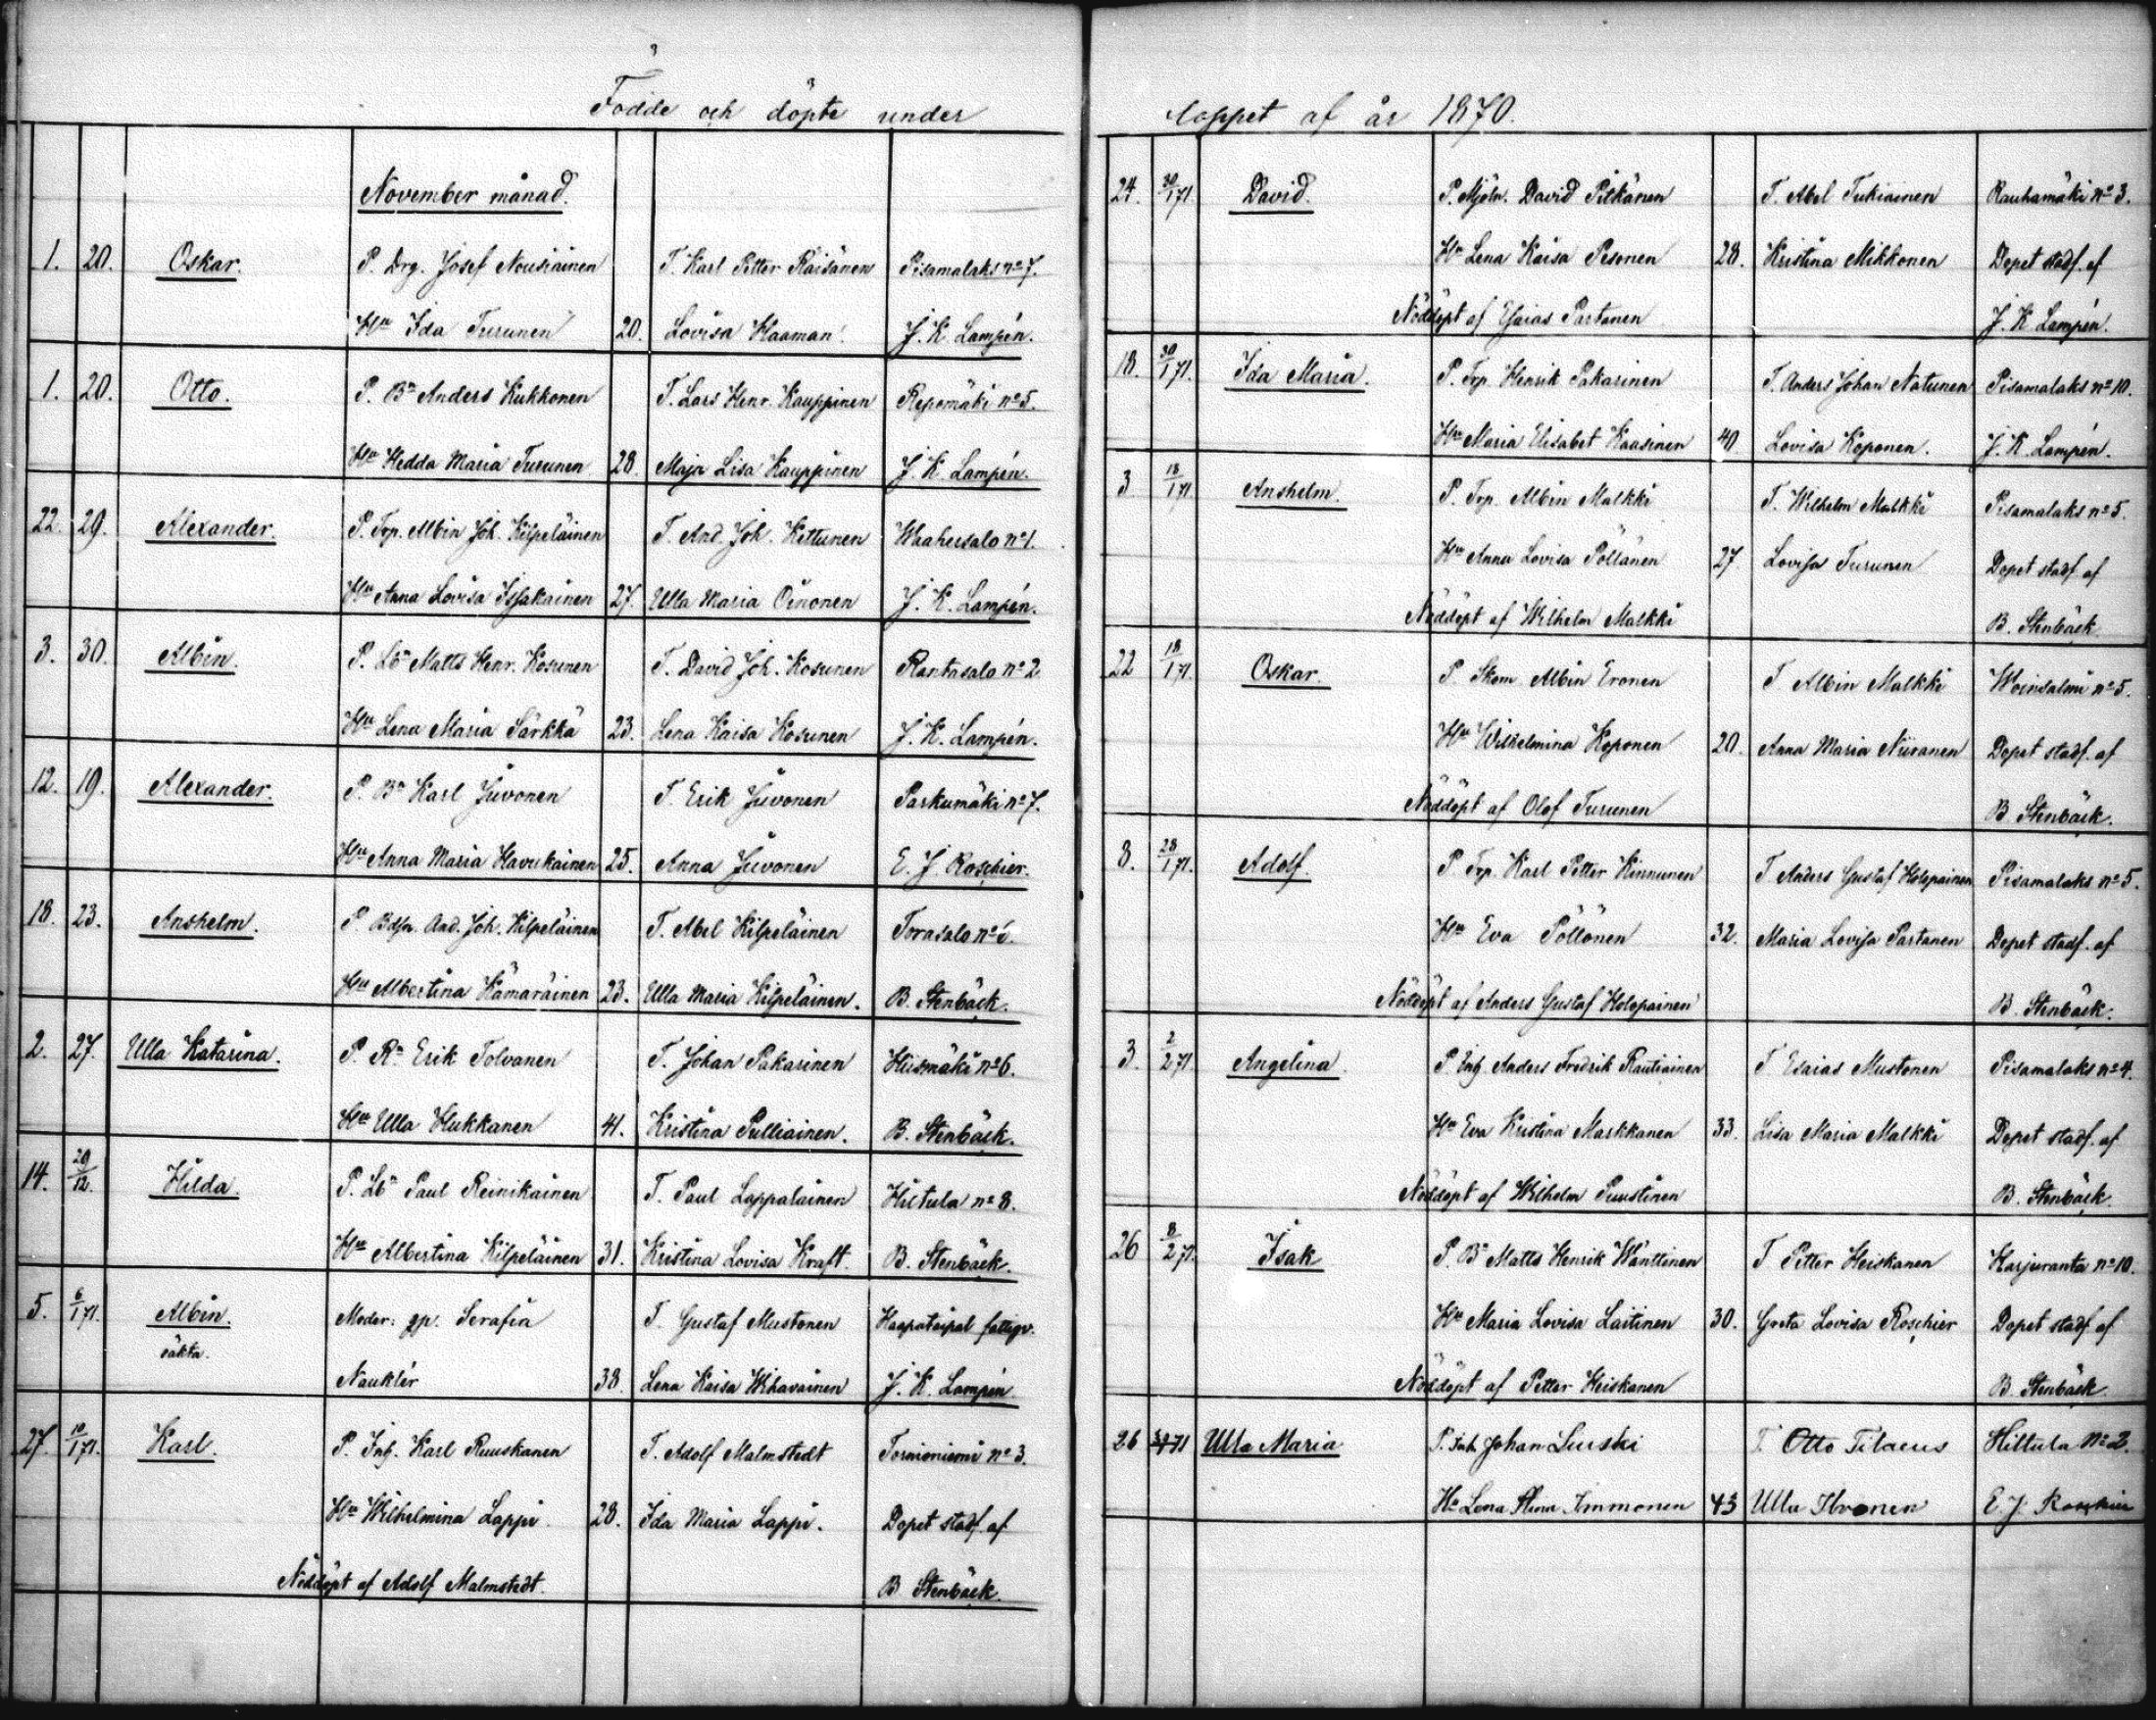 Födde och döpte under
November månad.
1. 20. Oskar. P. Drg. Josef Nousiainen T. Karl Petter Räisänen Pisamalaks no 7.
Hu Ida Turunen 20. Lovisa Haaman. J. K. Lampén.
1. 20. Otto. P. Bn Anders Kukkonen T. Lars Henr. Kauppinen Repomäki no 5.
Hu Hedda Maria Turunen 28. Maja Lisa Kauppinen J. K. Lampén.
22. 29. Alexander. P. Trp. Albin Joh. Kilpeläinen T. And. Joh. Kettunen Waahersalo no 1.
Hu Anna Lovisa Issakainen 27. Ulla Maria Oinonen J. K. Lampén.
3. 30. Albin. P. Lbn Matts Henr. Kosunen T. David Joh. Kosunen Rantasalo no 2
Hu Lena Maria Särkkä 23. Lena Kaisa Kosunen J. K. Lampén.
12. 19. Alexander. P. Bn Karl Juvonen T. Erik Juvonen Parkumäki no 7.
Hu Anna Maria Havukainen 25. Anna Juvonen E. J. Roschier.
18. 23. Anshelm. P. Bdsn. And. Joh. Kilpeläinen T. Abel Kilpeläinen Torasalo no
Hu Albertina Kämäräinen 23. Ulla Maria Kilpeläinen. B. Stenbäck.
2. 27. Ulla Katarina. P. Rn Erik Tolvanen T. Johan Pakarinen Hiismäki no 6.
Hu Ulla Hukkanen 41. Kristina Pulliainen. B. Stenbäck.
14. 20/12. Hilda. P. Lbn Paul Reinikainen T. Paul Lappalainen Hiltula no 8.
Hu Albertina Kilpeläinen 31. Kristina Lovisa Kraft. B. Stenbäck.
5. 6/1 71. Albin. Moder: gp. Serafia T. Gustaf Mustonen Haapataipal fattigv.
oäkta.
Nauklér 38. Lena Kaisa Wihavainen J. K. Lampén
27. 10/1 71. Karl. P. Inh. Karl Ruuskanen T. Adolf Malmstedt Tormioniemi no 3.
Hu Wilhelmina Lappi 28. Ida Maria Lappi. Dopet stadf. af
Nöddöpt af Adolf Malmstedt. B Stenbäck.
loppet af år 1870.
24. 30/1 71. David. P. Mjöln. David Pitkänen T. Abel Tukiainen Rauhamäki no 3.
Hu Lena Kaisa Pesonen 28. Kristina Mikkonen Dopet stadf. af
Nöddöpt af Esaias Partanen J. K Lampén.
18. 30/1 71. Ida Maria. P. Trp. Henrik Pakarinen T. Anders Johan Natunen Pisamalaks no 10.
Hu Maria Elisabet Kaasinen 40. Lovisa Koponen. J. K. Lampén.
3 18/1 71 Anshelm. P. Trp. Albin Malkki T. Wilhelm Malkki Pisamalaks no 5.
Hu Anna Lovisa Pöllänen 27. Lovisa Turunen Dopet stadf af
Nöddöpt af Wilhelm Malkki B. Stenbäck
22 18/1 71. Oskar. P. Skom Albin Eronen T. Albin Malkki Woinsalmi no 5.
Hu Wilhelmina Koponen 20. Anna Maria Niiranen Dopet stadf. af
Nöddöpt af Olof Turunen B. Stenbäck.
8. 28/1 71. Adolf. P. Trp. Karl Petter Kinnunen T. Anders Gustaf Holopainen Pisamalaks no 5.
Hu Eva Pöllönen 32. Maria Lovisa Partanen Dopet stadf. af
Nöddöpt af Anders Gustaf Holopainen B. Stenbäck.
3. 2/2 71. Angelina. P Inh. Anders Fredrik Rautiainen T Esaias Mustonen Pisamalaks no 4.
Hu Eva Kristina Markkanen 33. Lisa Maria Malkki Dopet stadf. af
Nöddöpt af Wilhelm Puustinen B. Stenbäck.
26 8/2 71. Isak P. Bn Matts Henrik Wänttinen T Petter Heiskanen Harjuranta no 10.
Hu Maria Lovisa Laitinen 30. Greta Lovisa Roschier Dopet stadf af
Nöddöpt af Petter Heiskanen B. Stenbäck
26 71 Ulla Maria P. Inh. Johan Luuski T. Otto Tilaeus Hiltula No 2.
Hu Lena Stina Immonen 43 Ulla Ilvonen E. J. Roschier